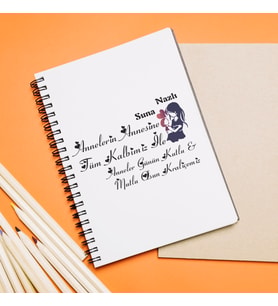 Suna Nazlı
Annelerin Annesine
Tüm Kalbimiz İle
Anneler Günün Kutlu &
Mutlu Olsun Kraliçemiz